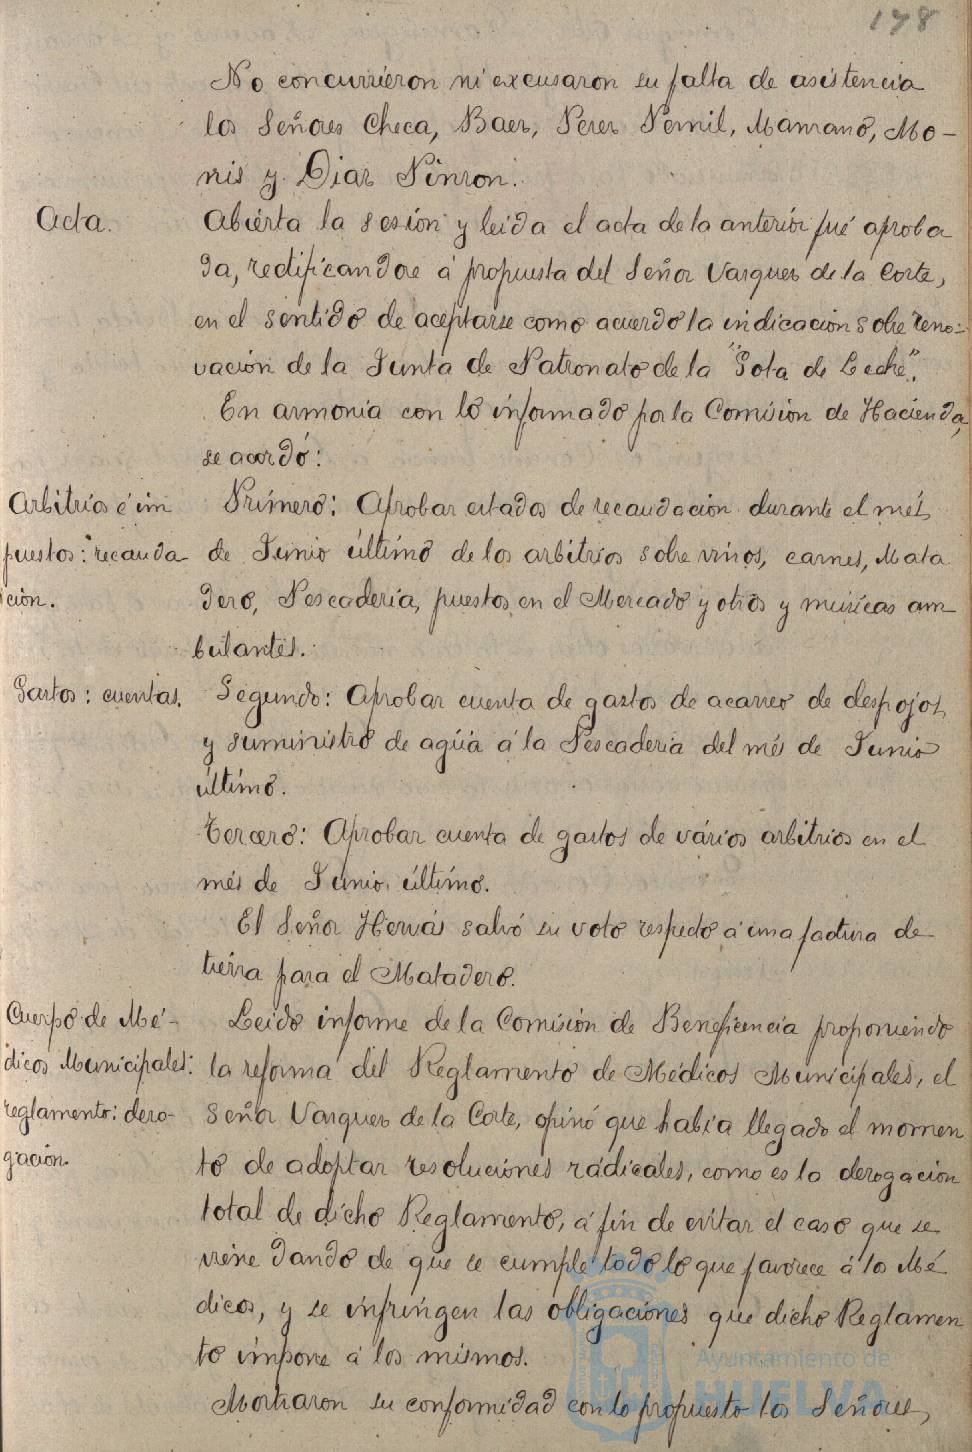 178
No concurrieron ni excusaron su falta de asistencia
los Señores Checa, Baez, Perez Pernil, Manzano, Mo-
ris y Diaz Pinzon.
Acta.
Abierta la sesión y leida el acta de la anterior fué aproba
da, rectificandose á propuesta del Señor Vazquez de la Corte,
en el sentido de aceptarse como acuerdo la indicación sobre reno-
vación de la Junta de Patronato de la "Gota de Leche".
En armonia con lo informado por la Comision de Hacienda,
se acordó:
Arbitrios é im
puestos: recauda-
ción.
Primero: Aprobar estados de recaudacion durante el més
de Junio último de los arbitrios sobre vinos, carnes, Mata
dero, Pescaderia, puestos en el Mercado y otros y musicas am
bulantes.
Gastos: cuentas.
Segundo: Aprobar cuenta de gastos de acarreo de despojos
y suministro de agua á la Pescaderia del més de Junio
último.
Tercero: Aprobar cuenta de gastos de vários arbitrios en el
més de Junio último.
El Señor Hervás salvó su voto respecto á una factura de
tierra para el Matadero.
Cuerpo de Mé-
dicos Municipales:
reglamento: dero-
gación.
Leido informe de la Comisión de Beneficencia proponiendo
la reforma del Reglamento de Médicos Municipales, el
Señor Vazquez de la Corte, opinó que habia llegado el momen
to de adoptar resoluciones radicales, como es la derogacion
total de dicho Reglamento, á fin de evitar el caso que se
viene dando de que se cumple todo lo que favorece á los Mé
dicos, y se infringen las obligaciones que dicho Reglamen
to impone á los mismos.
Mostraron su conformidad con lo propuesto los Señores,
Ayuntamiento de
HUELVA